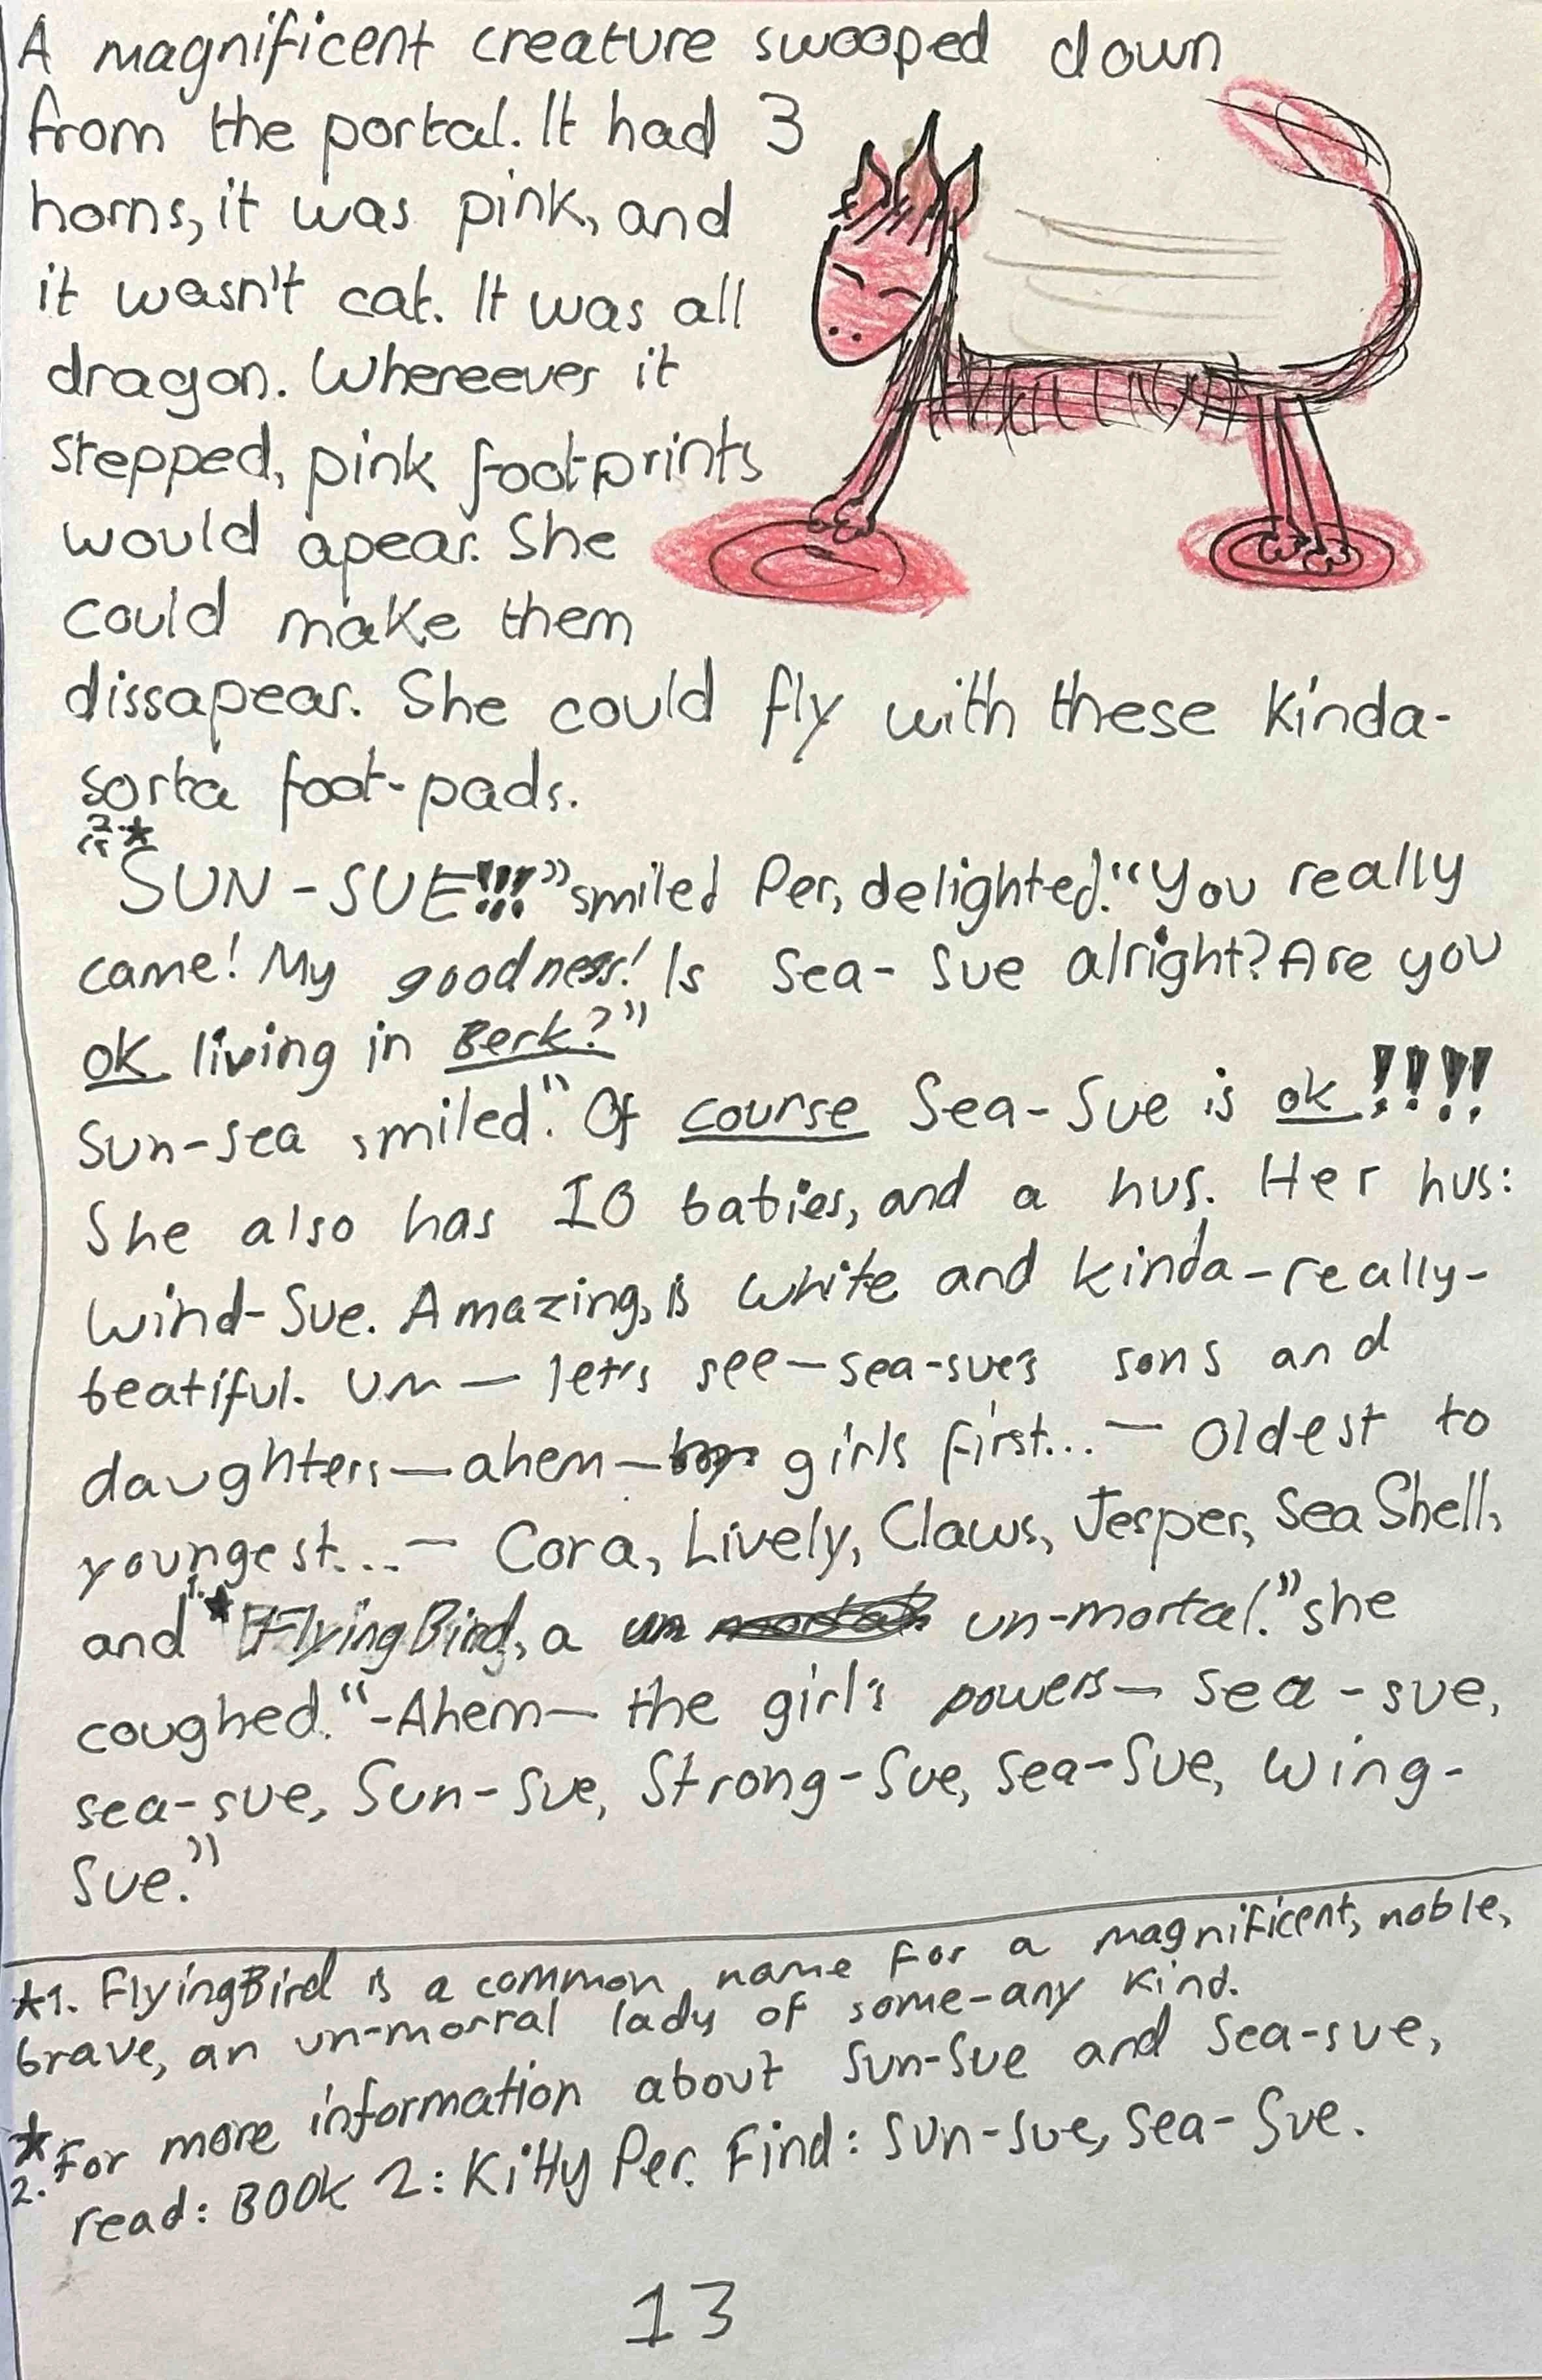 A magnificent creature swooped down
from the portal. It had 3
horns, it was pink, and
it wasn't cat. It was all
dragon. Whereever it
stepped, pink foot-prints
would apear. She
could make them
dissapear. She could fly with these kinda-
sorta foot-pads.
2.★
"SUN-SUE!!!" smiled Per, delighted. "You really
came! My goodness! Is Sea-Sue alright? Are you
ok living in Berk?"
Sun-sea smiled. "Of course Sea-Sue is ok!!!!
She also has 10 babies, and a hus. Her hus:
Wind-Sue. Amazing, is white and kinda-really-
beatiful. Um — let's see — sea-sue's sons and
daughters — ahem — girls first... — Oldest to
youngest... — Cora, Lively, Claws, Jesper, Sea Shell,
and 1.★ FlyingBird, a un-mortal." she
coughed. "-Ahem — the girl's powers — sea-sue,
sea-sue, Sun-Sue, Strong-Sue, Sea-Sue, Wing-
Sue."
★1. FlyingBird is a common name for a magnificent, noble,
brave, an un-morral lady of some-any kind.
★2. For more information about Sun-Sue and Sea-sue,
read: BOOK 2: Kitty Per. Find: Sun-sue, Sea-Sue.
13